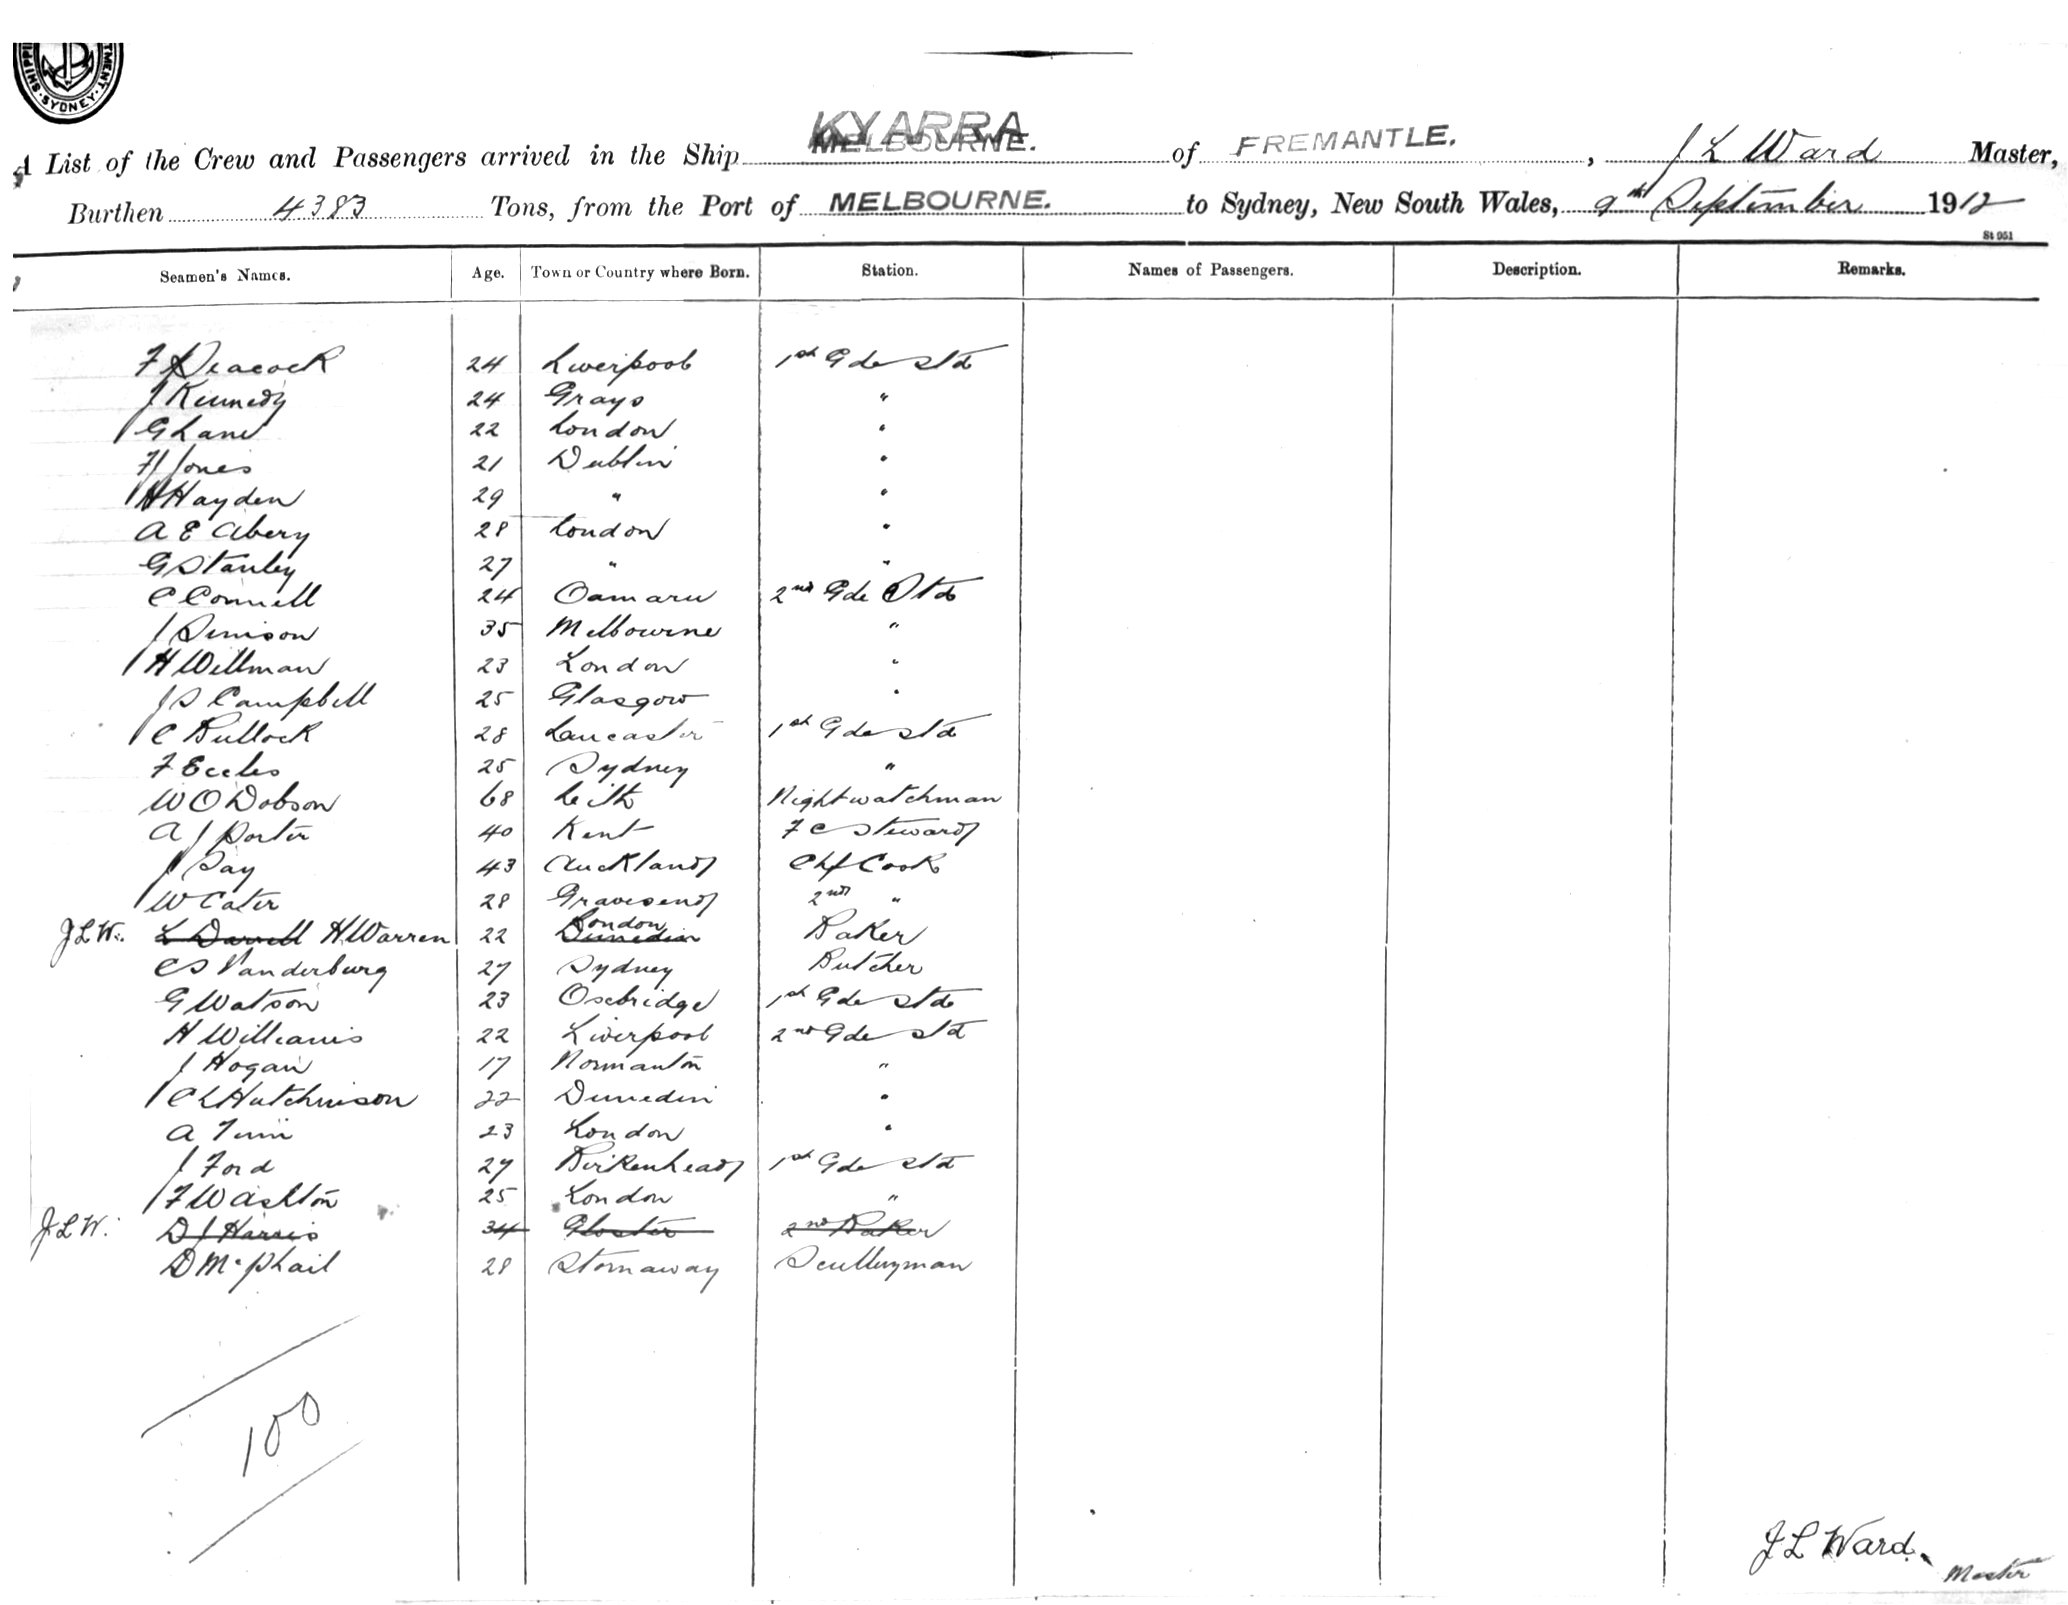 SHIPPI TMENT · SYDNEY ·
KYARRA
A List of the Crew and Passengers arrived in the Ship MELBOURNE. of FREMANTLE. , J L Ward Master,
Burthen 4383 Tons, from the Port of MELBOURNE. to Sydney, New South Wales, 9th September 1912
St 951
Seamen's Names. Age. Town or Country where Born. Station. Names of Passengers. Description. Remarks.
F Peacock 24 Liverpool 1st Gde Std
J Kennedy 24 Grays "
G Lane 22 London "
F J Jones 21 Dublin "
H Hayden 29 " "
A E Abery 28 London "
G Stanley 27 " "
C Connell 24 Oamaru 2nd Gde Std
J Simson 35 Melbourne "
H Wellman 23 London "
J S Campbell 25 Glasgow "
C Bullock 28 Lancaster 1st Gde Std
F Eccles 25 Sydney "
W O Dobson 68 Leith Nightwatchman
A J Porter 40 Kent F C Steward
J Day 43 Auckland Chf Cook
W Cater 28 Gravesend 2nd "
London
J L W. L Darrell H Warren 22 Dunedin Baker
C S Vanderburg 27 Sydney Butcher
G Watson 23 Osebridge 1st Gde Std
H Williams 22 Liverpool 2nd Gde Std
J Hogan 17 Normanton "
C L Hutchinson 22 Dunedin "
A 23 London "
J Ford 27 Birkenhead 1st Gde Std
F W Ashton 25 London "
J L W. D J Harris 34 Gloster 2nd Baker
D McPhail 28 Stornaway Scullryman
100
J L Ward.
Master